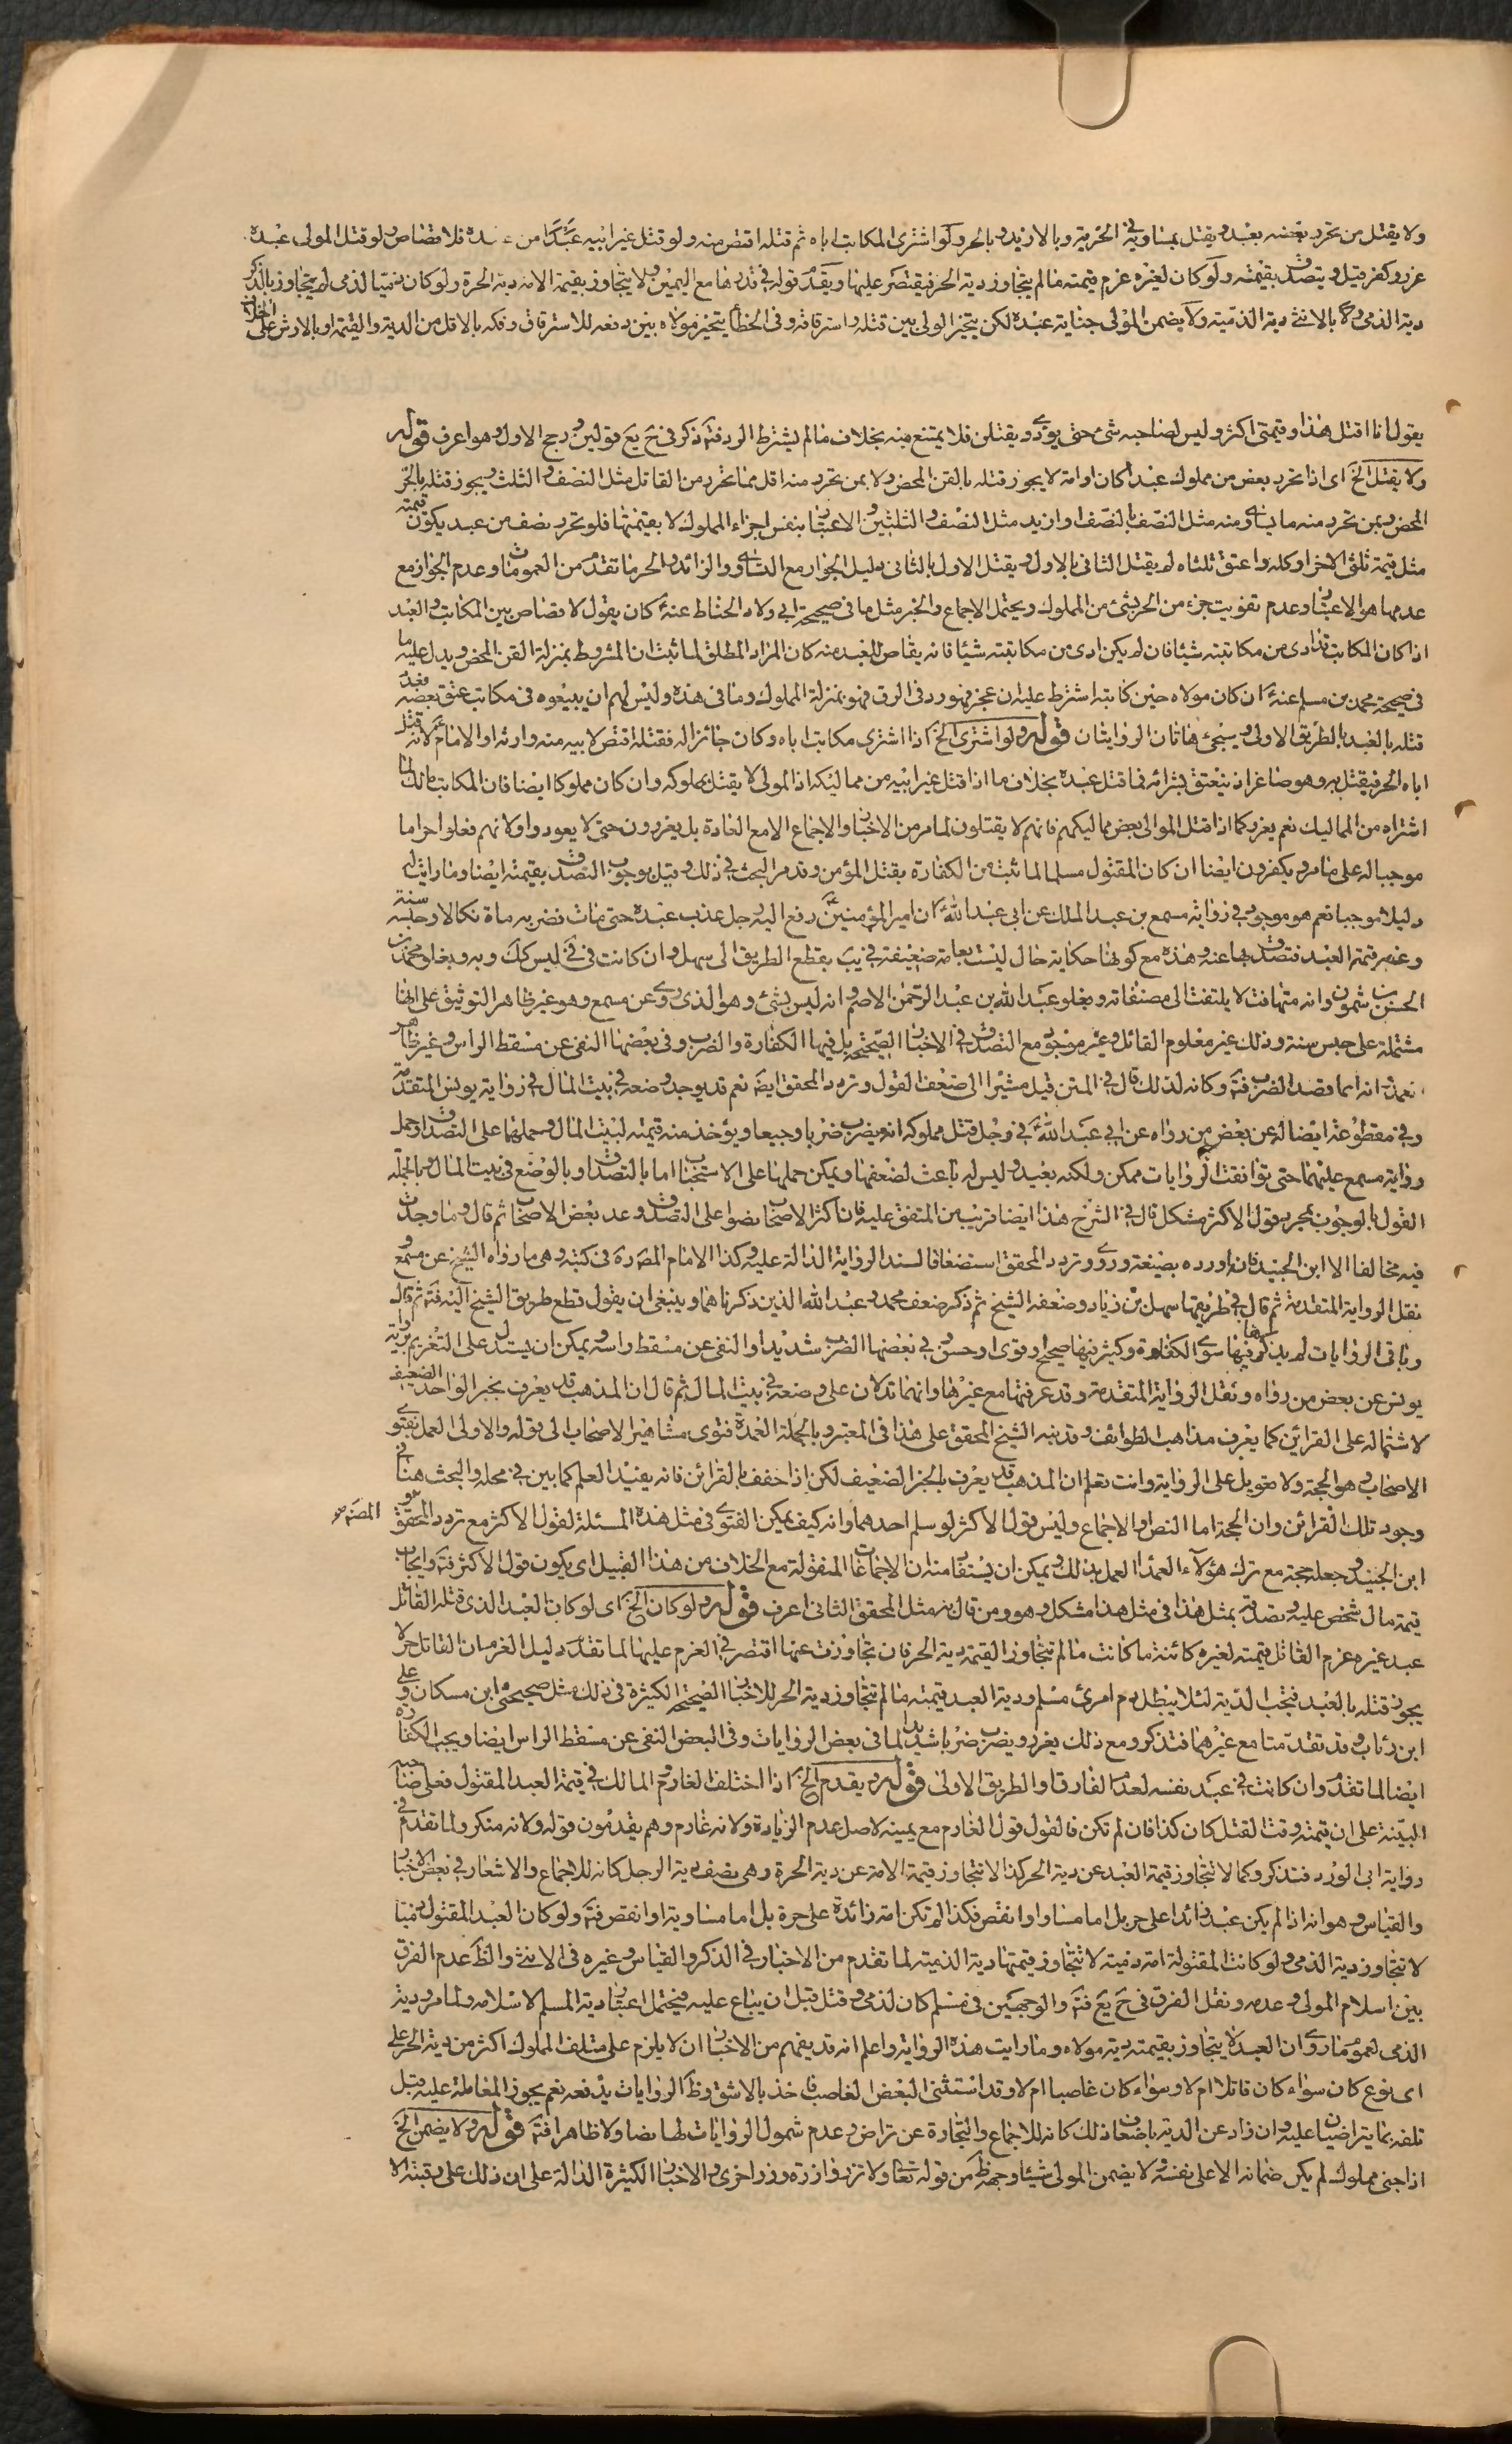 ولا يقتل من تحرر بعضه بعبد ويقتل بمساويه في الحرية وبالازيد وبالحر ولو اشترى المكاتب اباه ثم قتله اقتص منه ولو قتل غير ابيه عبدا من فلا قصاص ولو قتل المولى عبده
عزر وكفر قيل ويتصدق بقيمته ولو كان لغيره غرم قيمته ما لم يتجاوز دية الحر فيقتصر عليها ويقدم قوله في قدرها مع اليمين ولا يتجاوز بقيمة الامة دية الحرة ولو كان ذميا لذمى لم يتجاوز بالذكر
دية الذمى ولا بالانثى دية الذمية ولا يضمن المولى جناية عبده لكن يتخير الولى بين قتله واسترقاقه وفى الخطأ يتخير مولاه بين دفعه للاسترقاق وفكه بالاقل من الدية والقيمة او بالارش على الخلاف
يقول انا اقتل هذا وقيمتى اكثر وليس لصاحبه شئ حتى يؤدى ويقتلن فلا يمتنع منه بخلاف ما لم يشترط الرد فتم ذكر في ح يع قولين ورجح الاول وهو اعرف قوله
ولا يقتل الخ اى اذا تحرر بعض من مملوك عبدا كان او امة لا يجوز قتله بالقن المحض ولا بمن تحرر منه اقل مما تحرر من القاتل مثل النصف والثلث ويجوز قتله بالحر
المحض وبمن تحرر منه ما يساوى منه مثل النصف بالنصف او ازيد مثل النصف والثلثين والاعتبار بنفس اجزاء المملوك لا بقيمتها فلو تحرر نصف من عبد يكون قيمته
مثل قيمة ثلثى الاخر او كله واعتق ثلثاه لم يقتل الثانى بالاول ويقتل الاول بالثانى دليل الجواز مع التساوى والزائد والحر ما تقدم من العمومات وعدم الجواز مع
عدمها هو الاعتبار وعدم تفويت جزء من الحر بشئ من المملوك ويحتمل الاجماع والخبر مثل ما في صحيحة ابى ولاد الحناط عنه ع كان يقول لا قصاص بين المكاتب والعبد
اذا كان المكاتب قد ادى من مكاتبته شيئا فان لم يكن ادى من مكاتبته شيئا فانه يقاص للعبد منه كان المراد المطلق لما ثبت ان المشروط بمنزلة القن المحض ويدل عليه ما
في صحيحة محمد بن مسلم عنه ع ان كان مولاه حين كاتبه اشترط عليه ان عجز فهو رد في الرق فهو بمنزلة المملوك وما في هذه وليس لهم ان يبيعوه في مكاتب عتق بعضه فعدم
قتله بالعبد بالطريق الاولى وسيجئ هاتان الروايتان قوله ولو اشترى الخ اذا اشترى مكاتب اباه وكان جائزا له فقتله اقتص لابيه منه وارثه او الامام ع لانه قتل
اباه الحر فيقتل به وهو صاغر اذ ينعتق بشرائه فما قتل عبده بخلاف ما اذا قتل غير ابيه من مماليكه اذ المولى لا يقتل بمملوكه وان كان مملوكا ايضا فان المكاتب مالك لما
اشتراه من المماليك نعم يعزر كما اذا قتل الموالى بعض مماليكهم فانهم لا يقتلون لما مر من الاخبار والاجماع الا مع العادة بل يعزرون حتى لا يعودوا ولانهم فعلوا حراما
موجبا له على ما مر ويكفرون ايضا ان كان المقتول مسلما لما ثبت من الكفارة بقتل المؤمن وقد مر البحث في ذلك وقيل بوجوب التصدق بقيمته ايضا وما رايت له
دليلا موجبا نعم هو موجود في رواية مسمع بن عبد الملك عن ابى عبد الله ع ان امير المؤمنين ع رفع اليه رجل عذب عبده حتى مات فضربه مأة نكالا وحبسه سنة
وغرمه قيمة العبد فتصدق بها عنه وهذه مع كونها حكاية حال ليست بعامة ضعيفة في يب بقطع الطريق الى سهل وان كانت في في ليس كك وبه وبغلو محمد بن
الحسن بن شمون وانه متهافت لا يلتفت الى مصنفاته وبغلو عبد الله بن عبد الرحمن الاصم وانه ليس بشئ وهو الذى روى عن مسمع وهو غير ظاهر التوثيق على انها
مشتملة على حبس سنة وذلك غير معلوم القائل وغير موجود مع التصدق في الاخبار الصحيحة بل فيها الكفارة والضرب وفى بعضها النفى عن مسقط الراس وغير ظاهر
تعمده انه انما قصد الضرب فتم وكانه لذلك قال في المتن قيل مشيرا الى ضعف القول وتردد المحقق ايضا نعم قد يوجد وضعه في بيت المال في رواية يونس المتقدمة
وفي مقطوعته ايضا له عن بعض من رواه عن ابى عبد الله ع في رجل قتل مملوكه انه يضرب ضربا وجيعا ويؤخذ منه قيمته لبيت المال وحملهما على التصدق او حمل
رواية مسمع عليهما حتى توافقت الروايات ممكن ولكنه بعيد وليس له باعث لضعفها ويمكن حملها على الاستحباب اما بالتصدق او بالوضع في بيت المال وبالجملة
القول بالوجوب بمجرد قول الاكثر مشكل قال في الشرح هذا ايضا قريب من المتفق عليه فان اكثر الاصحاب نصوا على التصدق وعد بعض الاصحاب ثم قال وما وجدت
فيه مخالفا الا ابن الجنيد فانه اورده بصيغة وروى وتردد المحقق استضعافا لسند الرواية الدالة عليه وكذا الامام المصره في كتبه وهى ما رواه الشيخ عن مسمع و
نقل الرواية المتقدمة ثم قال في طريقها سهل بن زياد وضعفه الشيخ ثم ذكر ضعف محمد وعبد الله الذين ذكرناهما وينبغى ان يقول قطع طريق الشيخ اليه فتم ثم قال
وباقى الروايات لم يذكر فيها سوى الكفارة وكثير منها صحيح او قوى او حسن وفي بعضها الضرب شديدا والنفى عن مسقط راسه ويمكن ان يستدل على التغريم برواية
يونس عن بعض من رواه ونقل الرواية المتقدمة وقد عرفتها مع غيرها وانهما تدلان على وضعه في بيت المال ثم قال ان المذهب قد يعرف بخبر الواحد الضعيف
لاشتماله على القرائن كما يعرف مذاهب الطوائف وقد نبه الشيخ المحقق على هذا في المعتبر وبالجملة العمدة فتوى مشاهير الاصحاب الى قوله والاولى العمل بفتوى
الاصحاب وهو الحجة ولا تعويل على الرواية وانت تعلم ان المذهب قد يعرف بالخبر الضعيف لكن اذا خفف بالقرائن فانه يفيد العلم كما بين في محله والبحث هنا في
وجود تلك القرائن وان الحجة اما النص او الاجماع وليس قول الاكثر لو سلم احدهما وانه كيف يمكن الفتوى في مثل هذه المسئلة لقول الاكثر مع تردد المحقق و المصره و
ابن الجنيد وجعله حجة مع ترك هؤلاء العمد العمل بذلك ويمكن ان يستقا منه ان الاجماعات المنقولة مع الخلاف من هذا القبيل اى يكون قول الاكثر فتم وايجاب
قيمة مال شخص عليه وتصدقه بمثل هذا في مثل هذا مشكل وهو ومن قال به مثل المحقق الثانى اعرف قوله ولو كان الخ اى لو كان العبد الذى قتله القاتل
عبد غيره غرم القاتل قيمته لغيره كائنة ما كانت ما لم تتجاوز القيمة دية الحر فان تجاوزت عنها اقتصر في الغرم عليها لما تقدم دليل الغرم ان القاتل حر لا
يجوز قتله بالعبد فتجب الدية لئلا يبطل دم امرئ مسلم ودية العبد قيمته ما لم تتجاوز دية الحر للاخبار الصحيحة الكثيرة في ذلك مثل صحيحتى ابن مسكان وعلى
ابن رئاب وقد تقدمتا مع غيرهما فتذكر ومع ذلك يعزر ويضرب ضربا شديدا لما في بعض الروايات وفى البعض النفى عن مسقط الراس ايضا ويجب الكفارة
ايضا لما تقدم وان كانت في عبد نفسه لعدم الفارق او الطريق الاولى قوله ويقدم الخ اذا اختلف الغارم والمالك في قيمة العبد المقتول فعلى صاحبه
البينة على ان قيمته وقت القتل كان كذا فان لم تكن فالقول قول الغارم مع يمينه لاصل عدم الزيادة ولانه غارم وهم يقدمون قوله ولانه منكر ولما تقدم في
رواية ابى الورد فتذكر وكما لا تتجاوز قيمة العبد عن دية الحر كذا لا تتجاوز قيمة الامة عن دية الحرة وهى نصف دية الرجل كانه للاجماع والاشعار في بعض الاخبار
والقياس وهو انه اذا لم يكن عبد زائدا على حر بل اما مساو او انقص فكذا لم تكن امة زائدة على حرة بل اما مساوية او انقص فتم ولو كان العبد المقتول ذميا
لا تتجاوز دية الذمى ولو كانت المقتولة امة ذمية لا تتجاوز قيمتها دية الذمية لما تقدم من الاخبار في الذكر والقياس وغيره في الانثى والظ عدم الفرق
بين اسلام المولى وعدمه ونقل الفرق في ح يع فتم والوجهين في مسلم كان لذمى وقتل قبل ان يباع عليه فيحتمل اعتبار دية المسلم لاسلامه ولما مر ودية
الذمى لعموم ما روى ان العبد لا يتجاوز بقيمته دية مولاه وما رايت هذه الرواية واعلم انه قد يفهم من الاخبار ان لا يلزم على متلف المملوك اكثر من دية الحر على
اى نوع كان سواء كان قاتلا ام لا وسواء كان غاصبا ام لا وقد استثنى البعض الغاصب فاخذ بالاشق وظ الروايات يدفعه نعم يجوز المعاملة عليه قبل
تلفه بما يتراضيان عليه وان زاد عن الدية باضعاف ذلك كانه للاجماع والتجارة عن تراض وعدم شمول الروايات لها نصا ولا ظاهرا فتم قوله ولا يضمن الخ
اذا جنى مملوك لم يكن ضمانه الا على نفسه ولا يضمن المولى شيئا وجهه ظ من قوله تعا ولا تزر وازرة وزر اخرى والاخبار الكثيرة الدالة على ان ذلك على رقبته لا